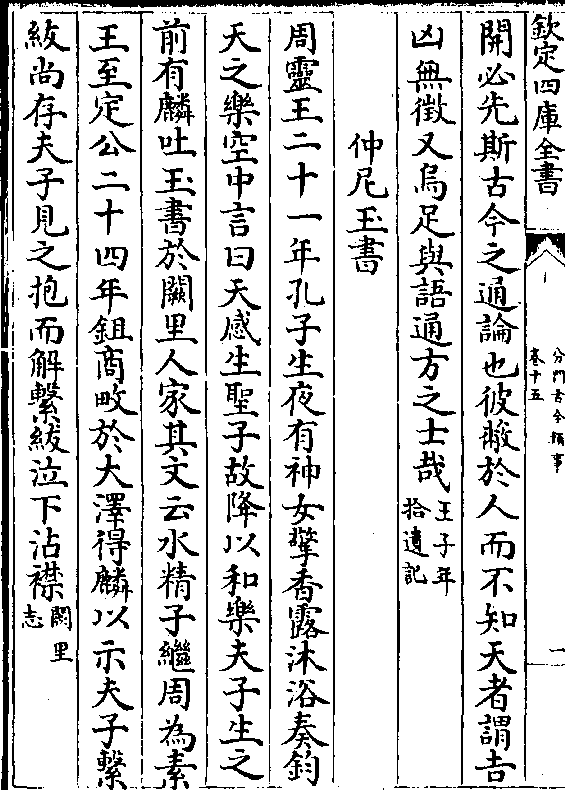 欽定四庫全書
分門古今類事
卷十五
一
開必先斯古今之通論也彼蔽於人而不知天者謂吉
凶無徴又烏足與語通方之士哉王子年
拾遺記
仲尼玉書
周靈王二十一年孔子生夜有神女擎香露沐浴奏鈞
天之樂空中言曰天感生聖子故降以和樂夫子生之
前有麟吐玉書於闕里人家其文云水精子繼周為素
王至定公二十四年鉏商畋於大澤得麟以示夫子繫
紱尚存夫子見之抱而解繫紱泣下沾襟闕里
志